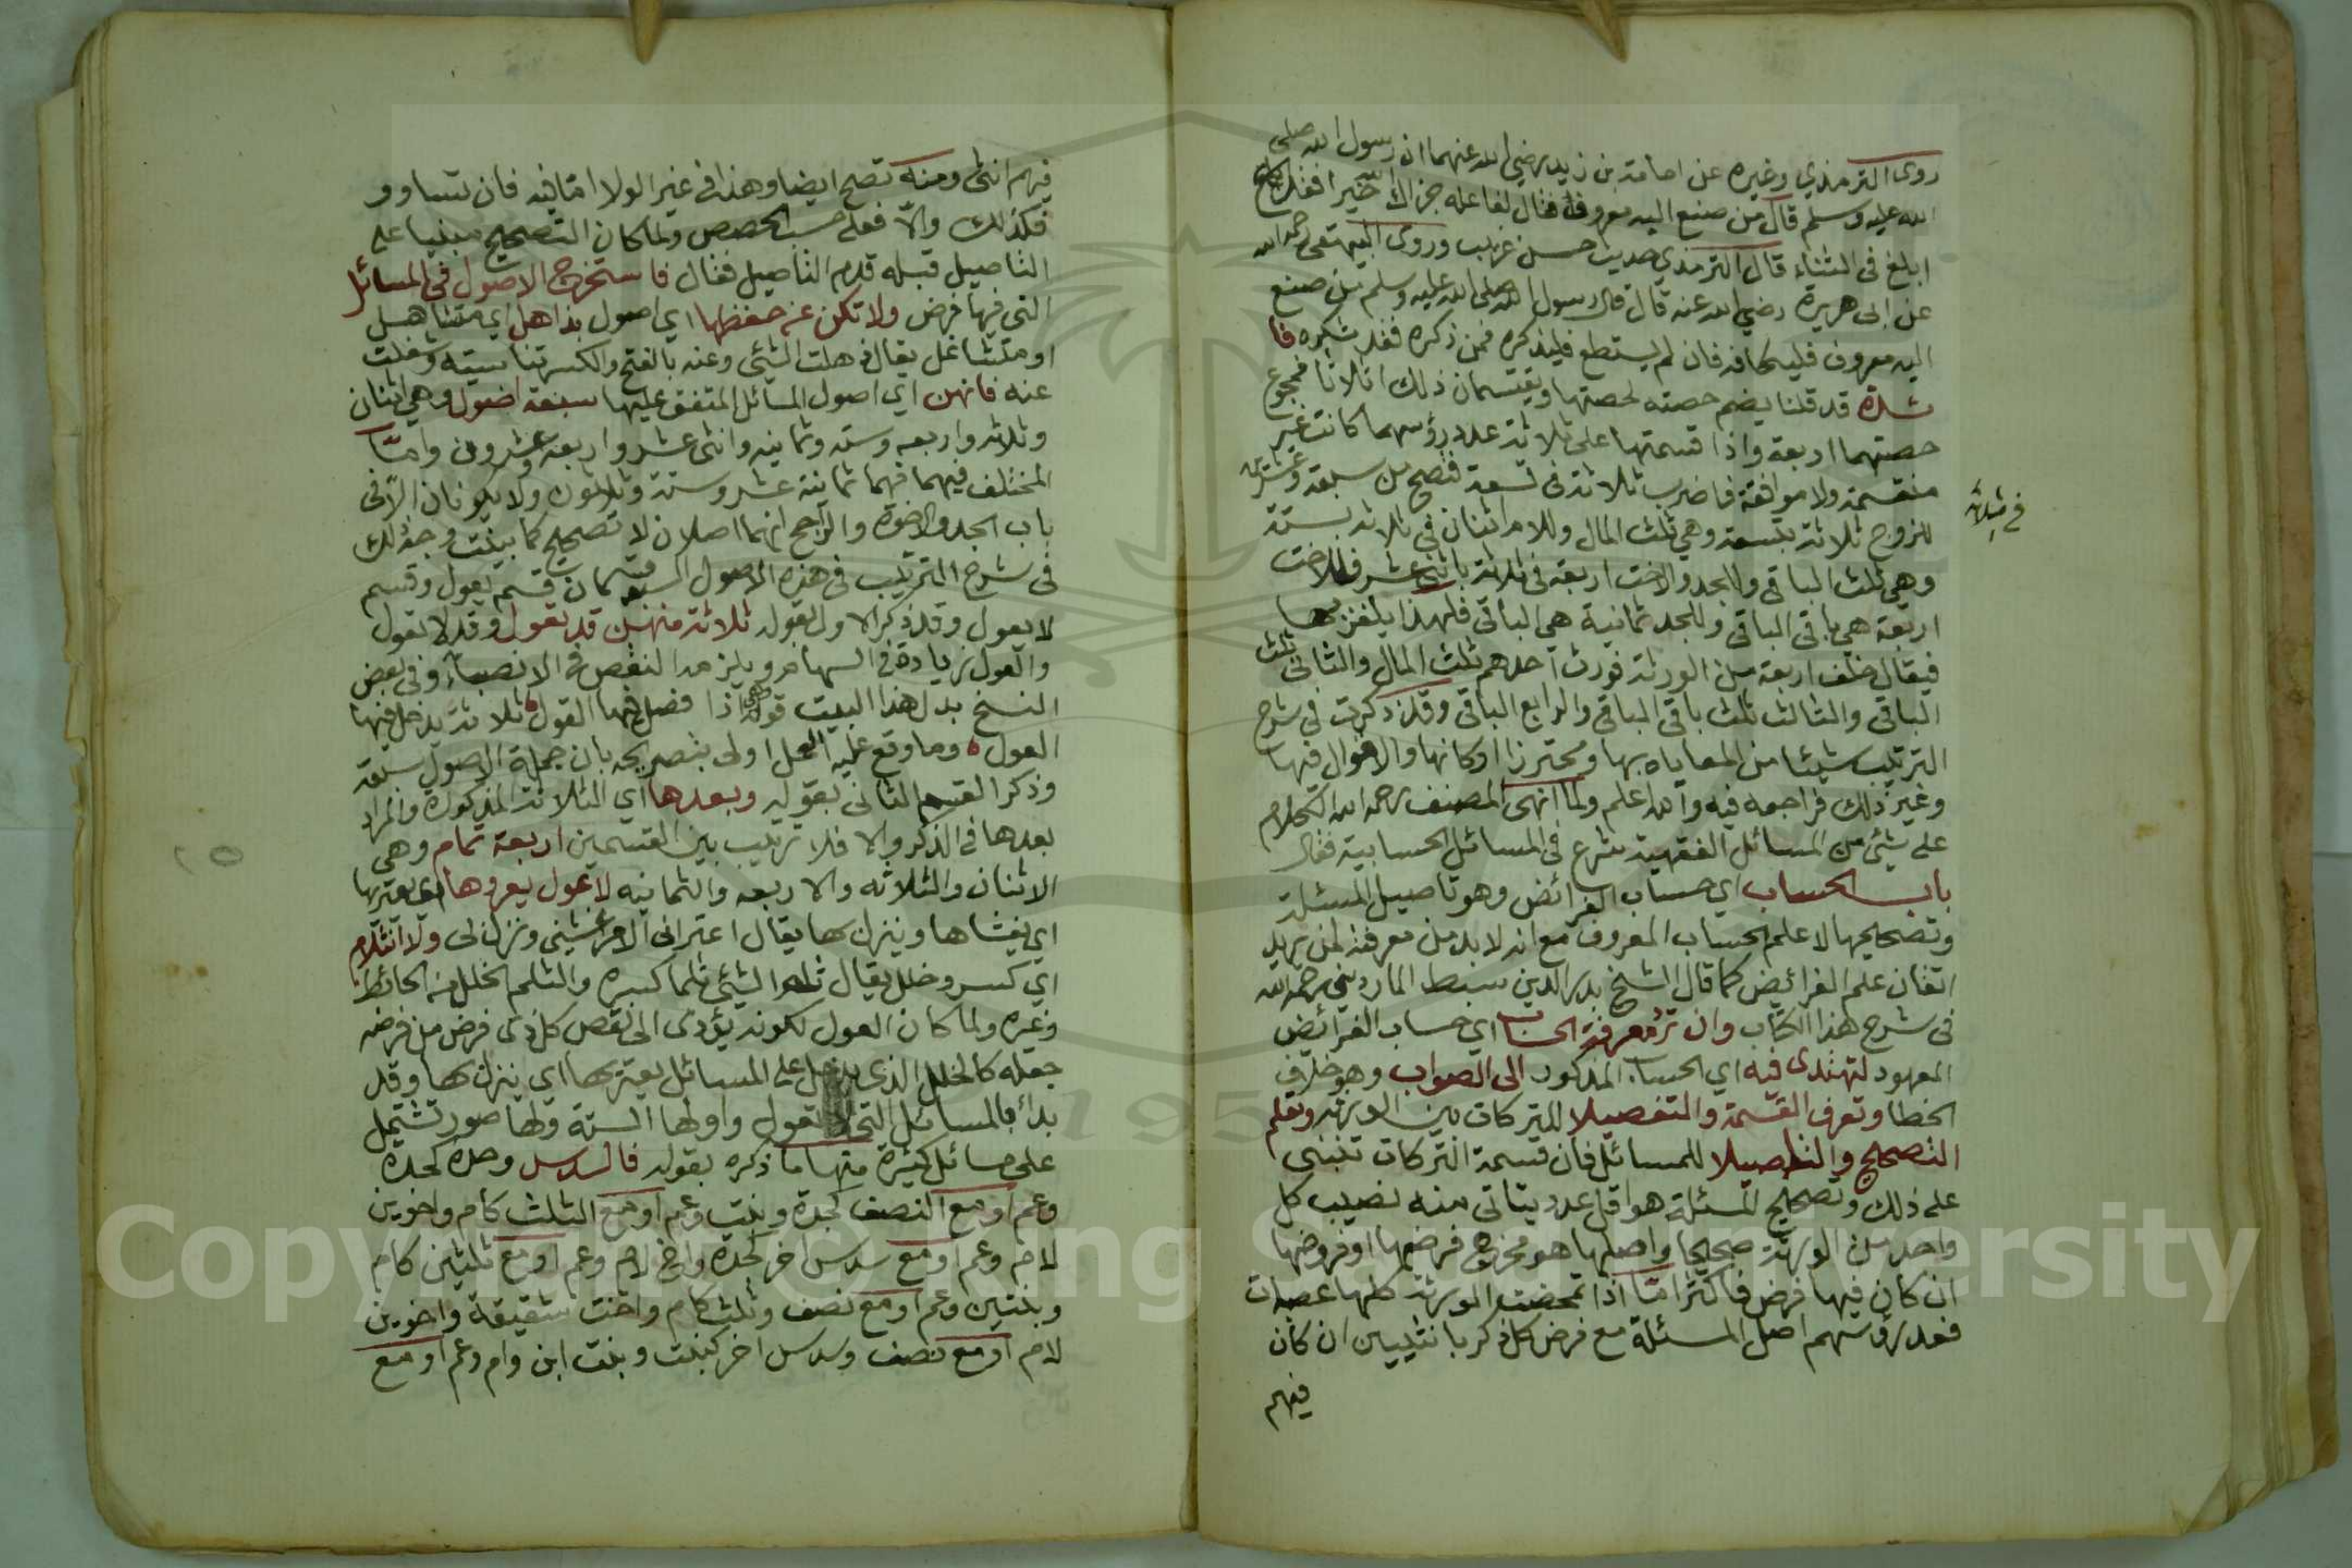 روى الترمذي وغيره عن اسامة بن زيد رضي الله عنهما ان رسول الله صلى
الله عليه وسلم قال من صنع اليه معروف فقال لفاعله جزاك الله خيرا فقد
ابلغ في الثناء قال الترمذي حديث حسن غريب وروى البيهقي رحمه الله
عن ابي هريرة رضي الله عنه قال قال رسول الله صلى الله عليه وسلم من صنع
اليه معروف فليكافه فان لم يستطع فليذكره فمن ذكره فقد شكره فا
شكره قد قلنا يضم حصته لحصتها ويقتسمان ذلك اثلاثا فمجموع
حصتهما اربعة واذا قسمتها على ثلاثة عدد رؤسهما كانت غير
منقسمة ولا موافقة فاضرب ثلاثة في تسعة فتصح من سبعة وعشرين
في ثلاثة
للزوج ثلاثة بتسعة وهي ثلث المال وللام اثنان في ثلاثة بستة
وهي ثلث الباقي وللجد والاخت اربعة في ثلاثة باثنى عشر فللاخت
اربعة هي باقي الباقي وللجد ثمانية هي الباقي فلهذا يلغز بها
فيقال خلف اربعة من الورثة فورث احدهم ثلث المال والثاني ثلث
الباقي والثالث ثلث باقي الباقي والرابع الباقي وقد ذكرت في شرح
الترتيب شيئا من المعاياه بها ومحترز اركانها والاقوال فيها
وغير ذلك فراجعه فيه والله اعلم ولما انهى المصنف رحمه الله الكلام
على شئ من المسائل الفقهية شرع في المسائل الحسابية فقال
باب الحساب اي حساب الفرائض وهو تاصيل المسئلة
وتصحيحها لا علم الحساب المعروف مع انه لا بد من معرفته لمن يريد
اتقان علم الفرائض كما قال الشيخ بدر الدين سبط المارديني رحمه الله
في شرح هذا الكتاب وان ترد معرفة الحساب اي حساب الفرائض
المعهود لتهتدى فيه اي الحساب المذكور الى الصواب وهو خلاف
الخطا وتعرف القسمة والتفصيلا للتركات بين الورثة وتعلم
التصحيح والتاصيلا للمسائل فان قسمة التركات تنبنى
على ذلك وتصحيح المسئلة هو اقل عدد يتاتى منه نصيب كل
واحد من الورثة صحيحا واصلها هو مخرج فرضها او فروضها
ان كان فيها فرض فاكثر اما اذا تمحضت الورثة كلها عصبات
فعدد رؤسهم اصل المسئلة مع فرض كل ذكر بانثيين ان كان
فيهم
فيهم انثى ومنه تصح ايضا وهذا في غير الولا اما فيه فان تساوو
فكذلك والا فعلى حسب الحصص ولما كان التصحيح مبنيا على
التاصيل قبله قدم التاصيل فقال فاستخرج الاصول في المسائل
التي فيها فرض ولا تكن عن حفظها اي اصول بذاهل اي متناهل
او متشاغل يقال ذهلت الشئ وعنه بالفتح والكسر تناسيته وشغلت
عنه فانهن اي اصول المسائل المتفق عليها سبعة اصول وهي اثنان
وثلاثه واربعه وسته وثمانيه واثنى عشر واربعة وعشرون واما
المختلف فيهما فهما ثمانية عشر وستة وثلاثون ولا يكونان الا في
باب الجد والاخوة والراجح انهما اصلان لا تصحيح كما بينت وجه ذلك
في شرح الترتيب في هذه الاصول السبعة قسمان قسم يعول وقسم
لا يعول وقد ذكر الاول بقوله ثلاثة منهن قد تعول وقد لا تعول
والعول زيادة في السهام ويلزمه النقص في الانصباء وفي بعض
النسخ بدل هذا البيت قوله اذا فصل فيها القول ثلاثة يدخل فيها
العول وما وقع عليه الحل اولى بتصريحه بان جملة الاصول سبعة
وذكر القسم الثاني بقوله وبعدها اي الثلاثة المذكورة والمراد
بعدها في الذكر والا فلا ترتيب بين القسمين اربعة تمام وهي
الاثنان والثلاثه والاربعه والثمانيه لا عول يعروها اي يعتريها
اي يغشاها وينزل بها يقال اعتراني الامر غشيني ونزل لى ولا انثلام
اي كسر وخلل يقال ثلم الشئ ثلما كسره والثلم الخلل في الحائط
وغيره ولما كان العول لكونه يؤدى الى نقص كل ذى فرض من فرضه
جعله كالخلل الذى يدخل على المسائل يعتريها اي ينزل بها وقد
بدأ بالمسائل التي تعول واولها الستة ولها صور تشتمل
على مسائل كثيرة منها ما ذكره بقوله فالسدس وحده كجدة
وعم او مع النصف كجدة وبنت وعم او مع الثلث كام واخوين
لام وعم او مع سدس اخر كجدة واخ لام وعم او مع ثلثين كام
وبنتين وعم او مع نصف وثلث كام واخت شقيقة واخوين
لام او مع نصف وسدس اخر كبنت وبنت ابن وام وعم او مع
Copyright © King Saud University
1957